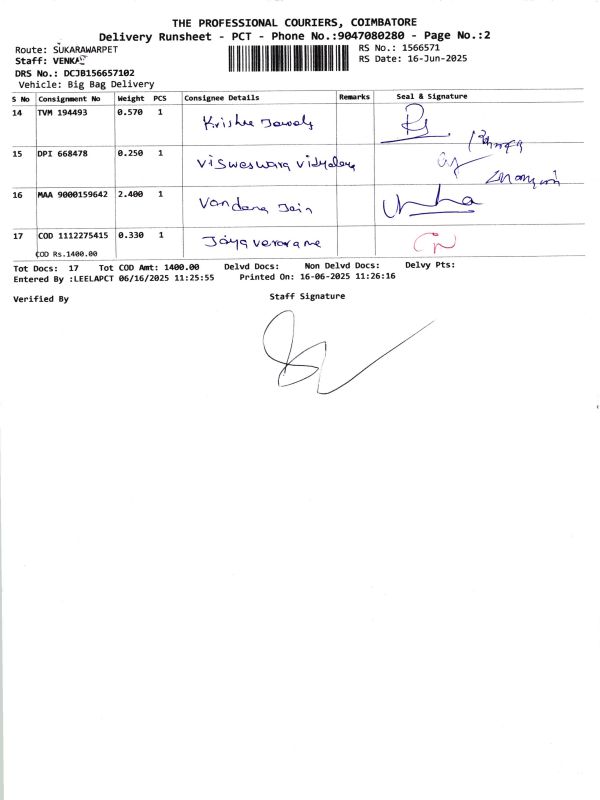 THE PROFESSIONAL COURIERS, COIMBATORE
Delivery Runsheet - PCT - Phone No.:9047080280 - Page No.:2
Route: SUKARAWARPET
RS No.: 1566571
Staff: VENKAT
RS Date: 16-Jun-2025
DRS No.: DCJB156657102
Vehicle: Big Bag Delivery
S No Consignment No Weight PCS Consignee Details Remarks Seal & Signature
14 TVM 194493 0.570 1 Krishna
15 DPI 668478 0.250 1 Visweswara Vidyalaya
16 MAA 9000159642 2.400 1 Vandana Jain
17 COD 1112275415 0.330 1
COD Rs.1400.00
Tot Docs: 17 Tot COD Amt: 1400.00 Delvd Docs: Non Delvd Docs: Delvy Pts:
Entered By :LEELAPCT 06/16/2025 11:25:55 Printed On: 16-06-2025 11:26:16
Verified By Staff Signature